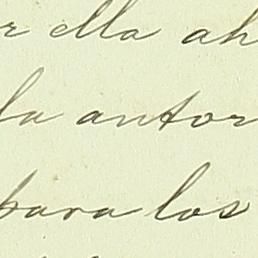 r ella ah
la autor
para los